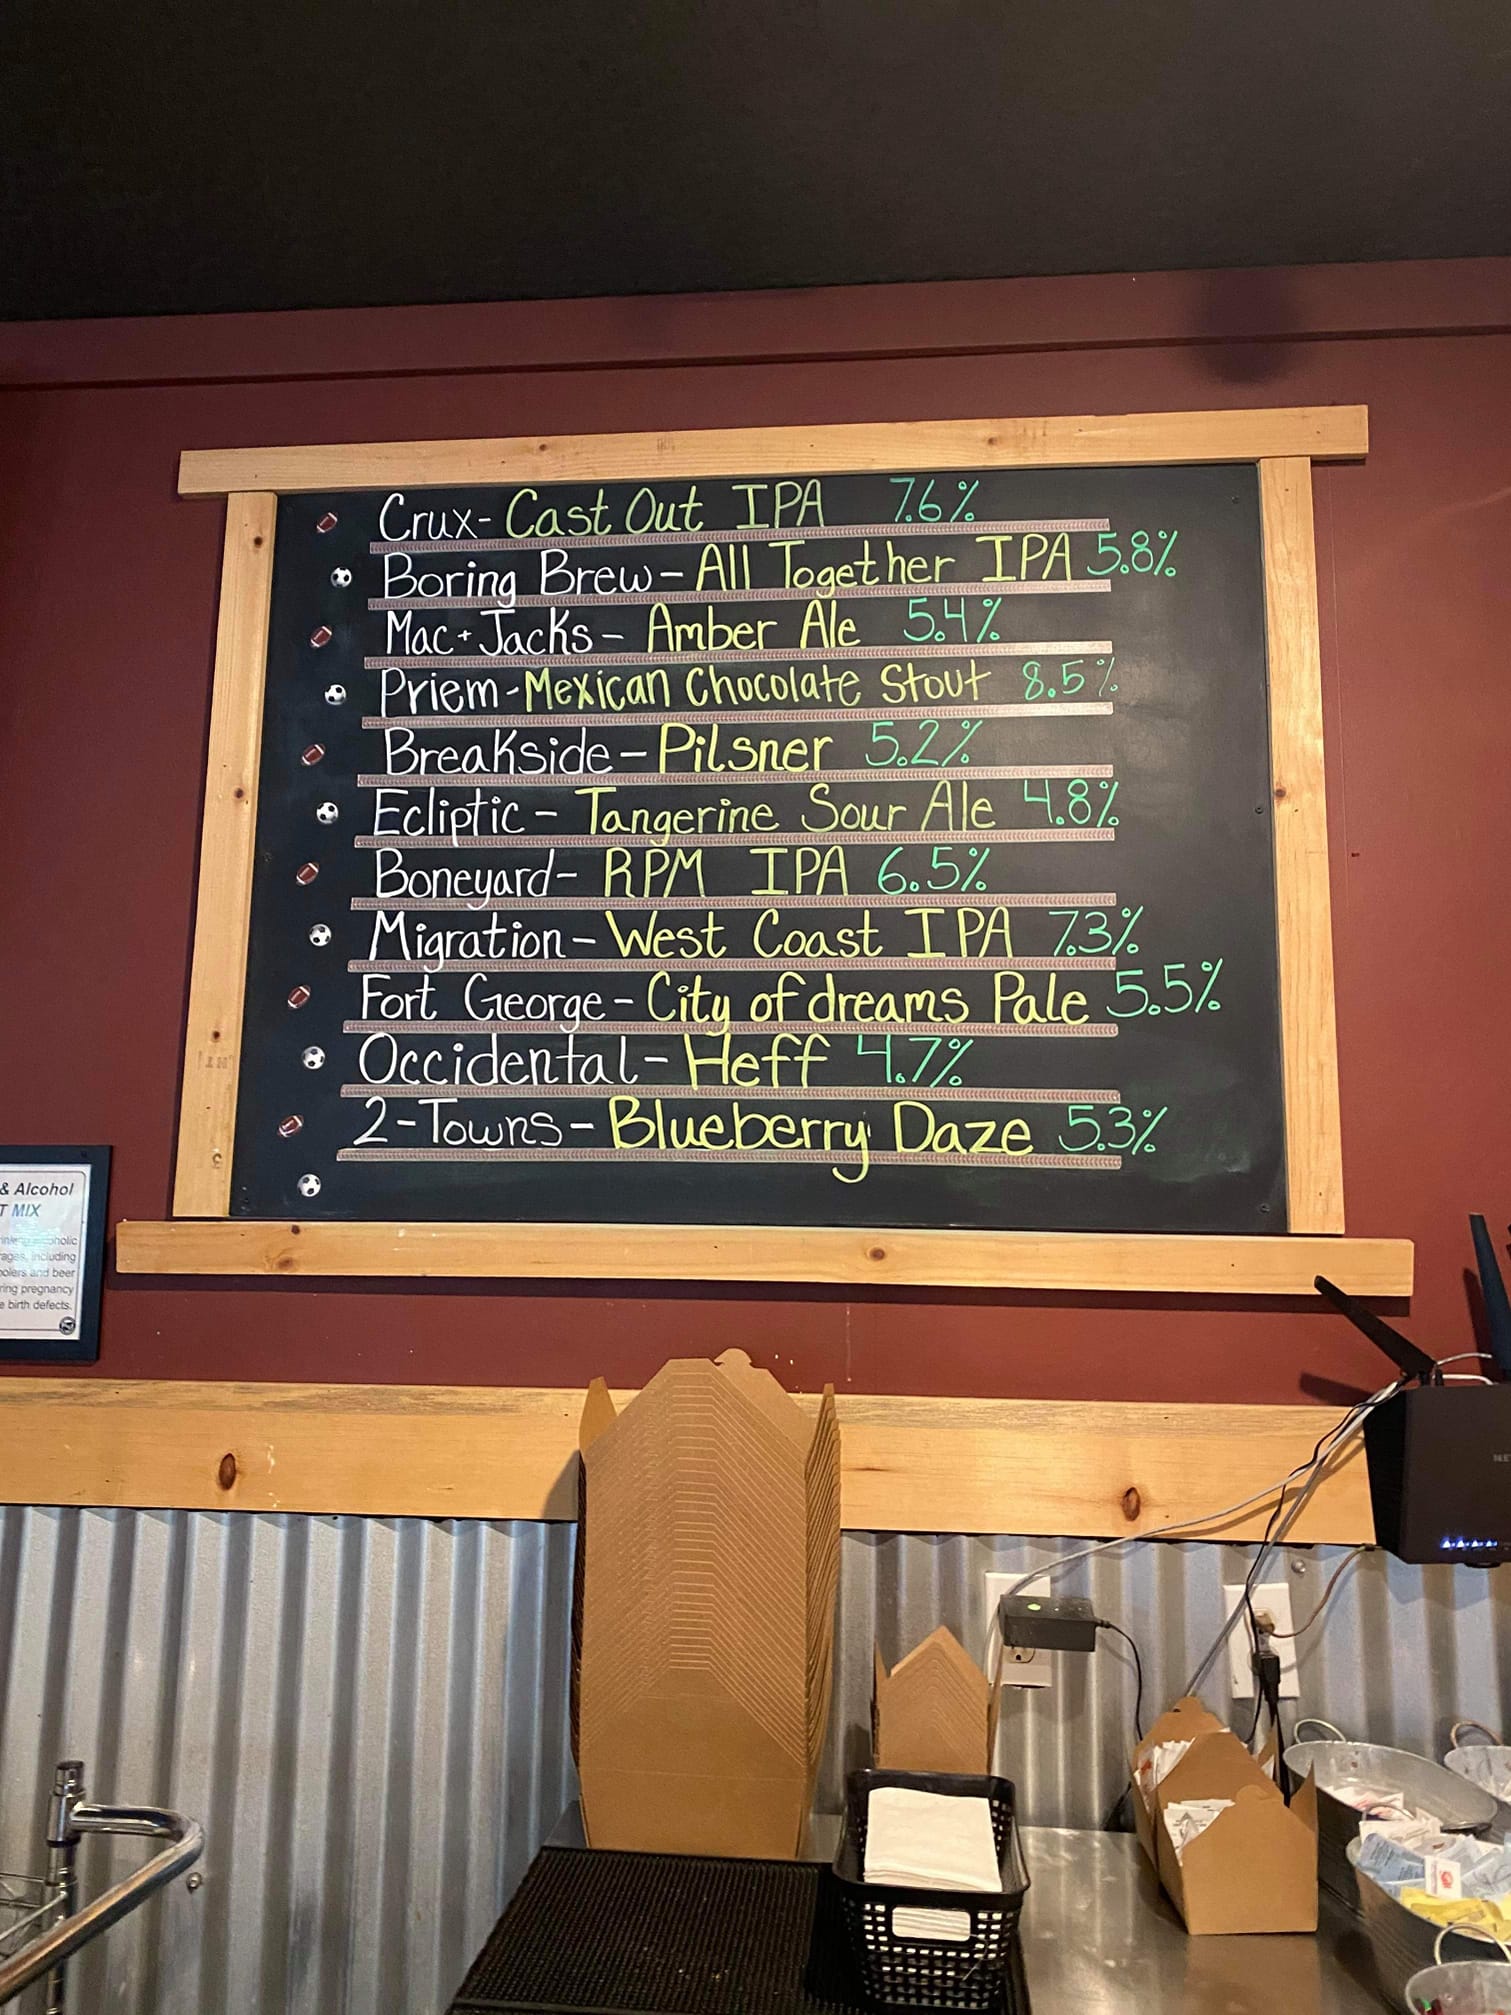 Crux- Cast Out IPA 7.6%
Boring Brew- All Together IPA 5.8%
Mac + Jacks- Amber Ale 5.4%
Priem- Mexican Chocolate Stout 8.5%
Breakside- Pilsner 5.2%
Ecliptic- Tangerine Sour Ale 4.8%
Boneyard- RPM IPA 6.5%
Migration- West Coast IPA 7.3%
Fort George- City of dreams Pale 5.5%
Occidental- Heff 4.7%
2-Towns- Blueberry Daze 5.3%
& Alcohol
T MIX
including
and beer
pregnancy
birth defects.